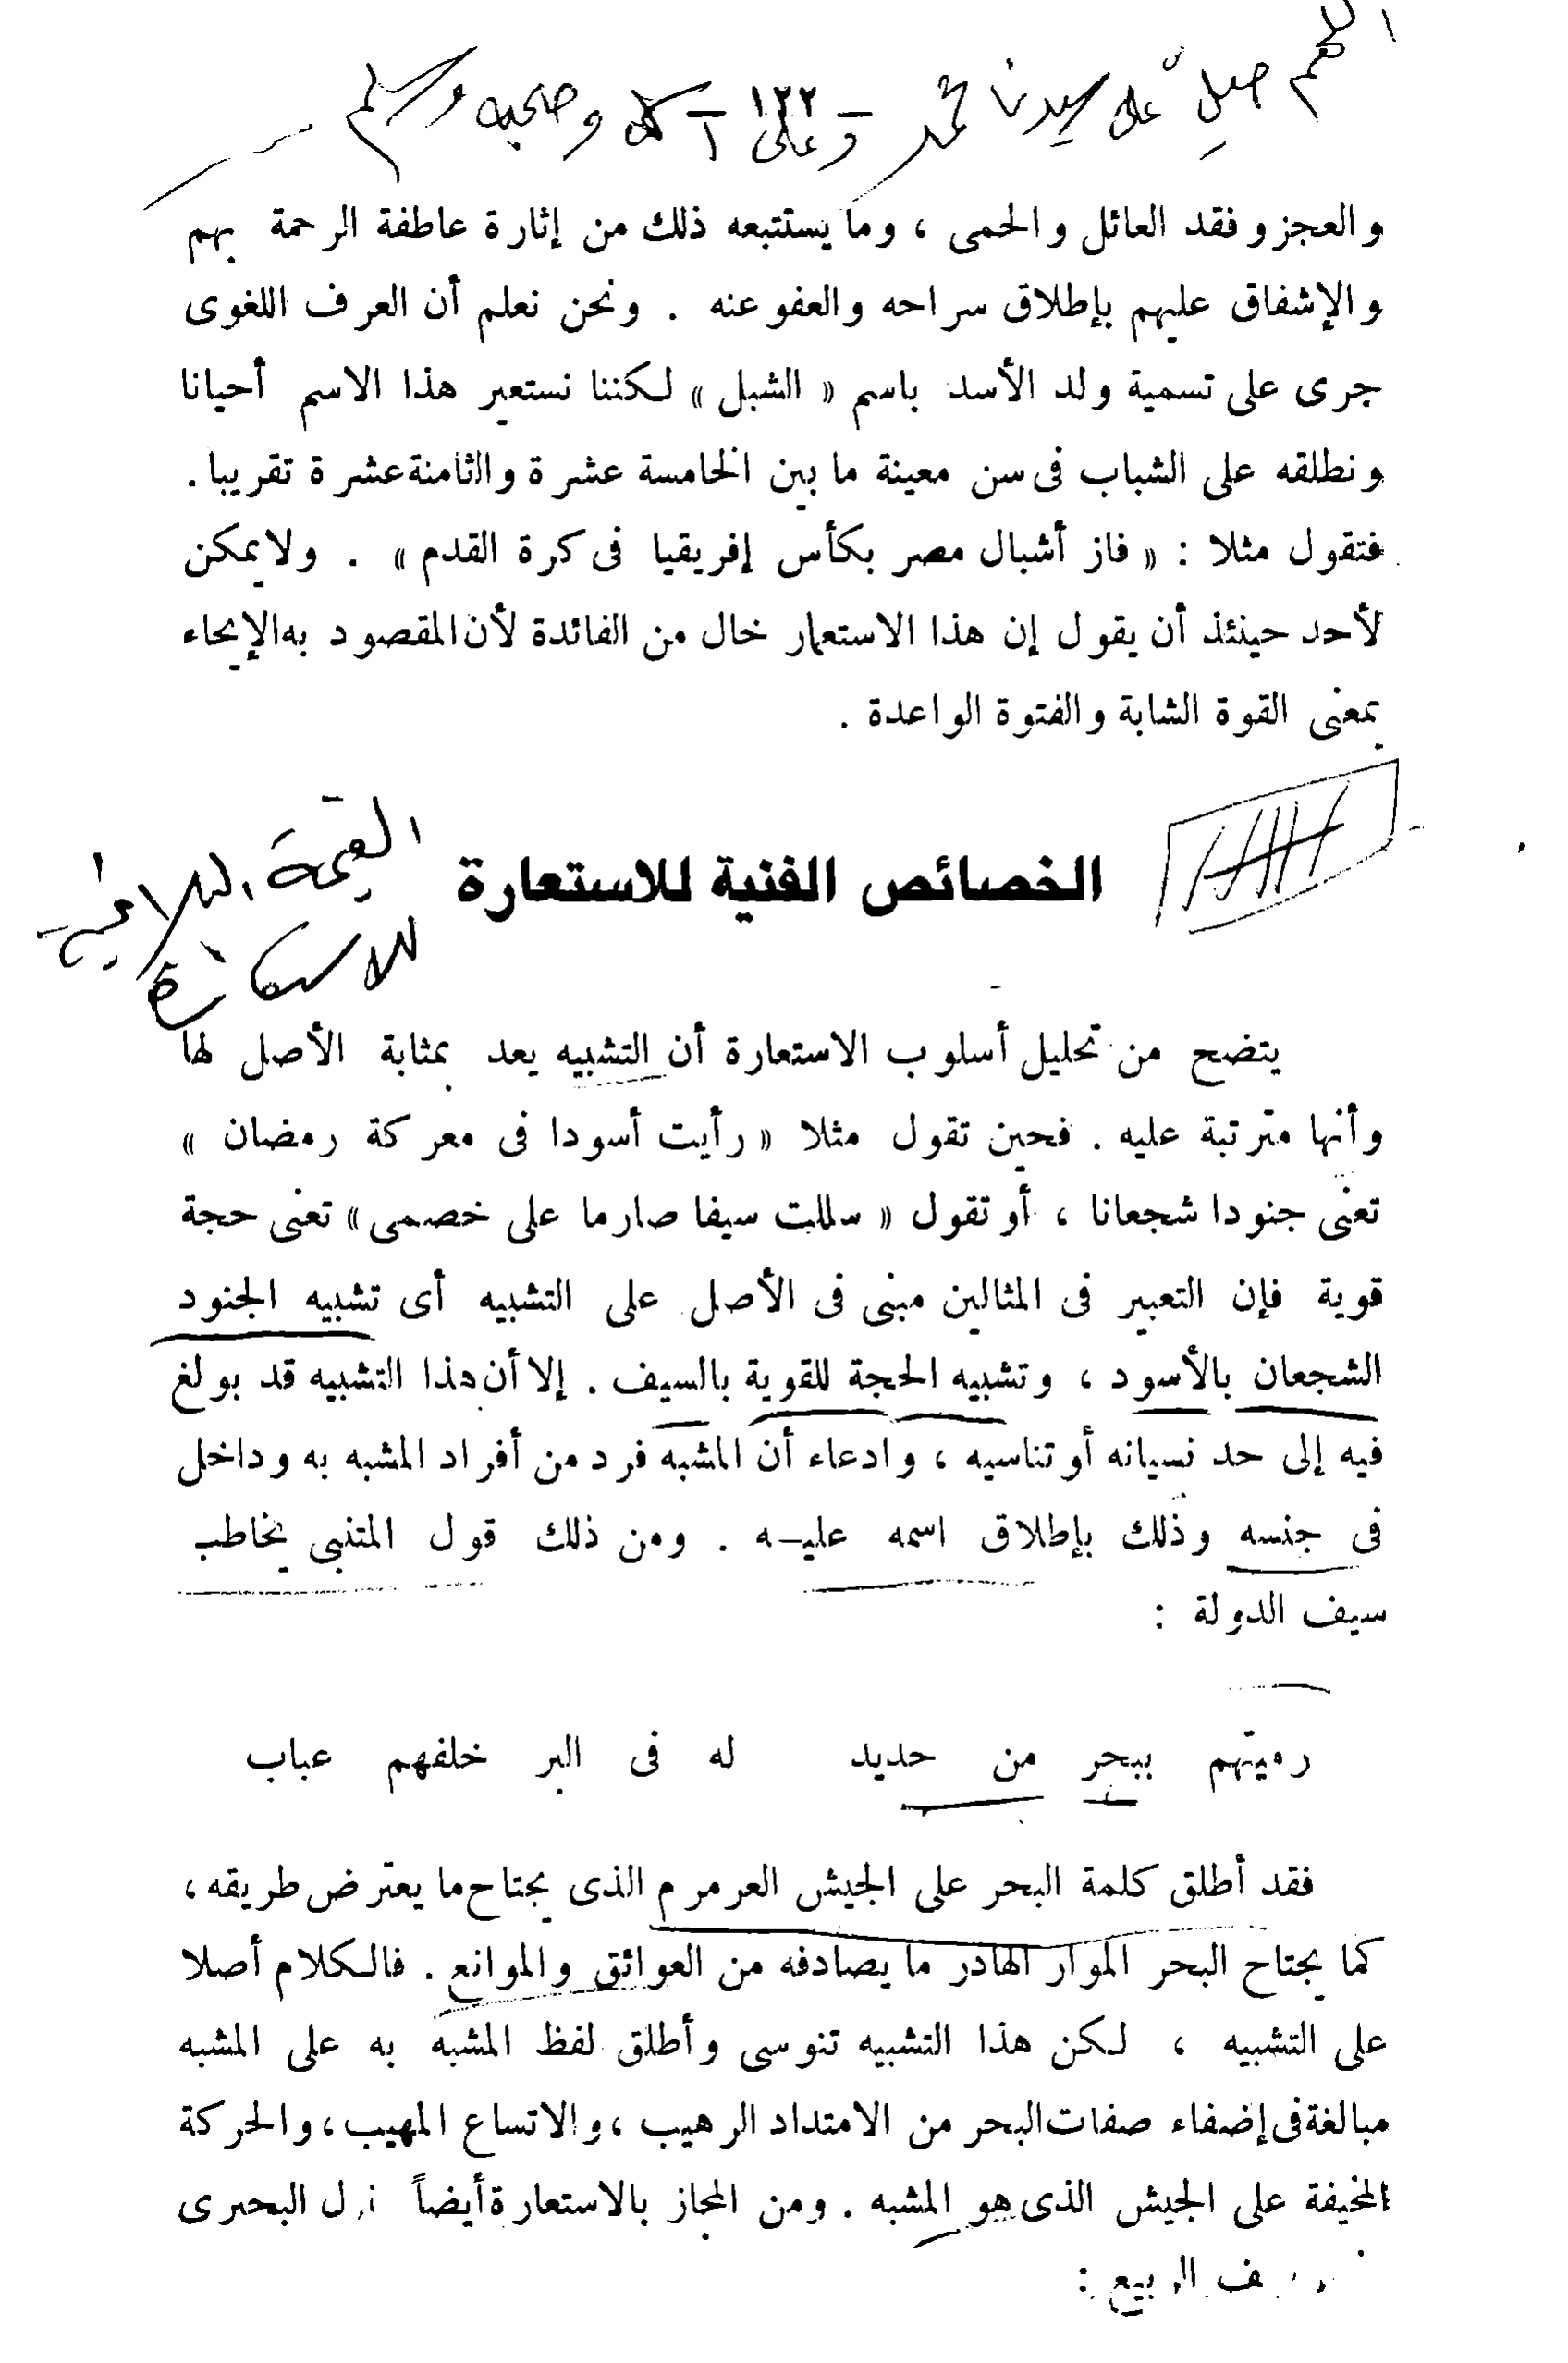 اللهم صل على سيدنا محمد وعلى آله وصحبه وسلم
— ١٢٢ —
والعجز وفقد العائل والحمى ، وما يستتبعه ذلك من إثارة عاطفة الرحمة بهم
والإشفاق عليهم بإطلاق سراحه والعفو عنه . ونحن نعلم أن العرف اللغوى
جرى على تسمية ولد الأسد باسم « الشبل » لكننا نستعير هذا الاسم أحيانا
ونطلقه على الشباب فى سن معينة ما بين الخامسة عشرة والثامنة عشرة تقريبا .
فتقول مثلا : « فاز أشبال مصر بكأس إفريقيا فى كرة القدم » . ولا يمكن
لأحد حينئذ أن يقول إن هذا الاستعمار خال من الفائدة لأن المقصود به الإيحاء
بمعنى القوة الشابة والفتوة الواعدة .
الخصائص الفنية للاستعارة
القيمة البلاغية
للاستعارة
يتضح من تحليل أسلوب الاستعارة أن التشبيه يعد بمثابة الأصل لها
وأنها مترتبة عليه . فحين تقول مثلا « رأيت أسودا فى معركة رمضان »
تعنى جنودا شجعانا ، أو تقول « سللت سيفا صارما على خصمى » تعنى حجة
قوية فإن التعبير فى المثالين مبنى فى الأصل على التشبيه أى تشبيه الجنود
الشجعان بالأسود ، وتشبيه الحجة للقوية بالسيف . إلا أن هذا التشبيه قد بولغ
فيه إلى حد نسيانه أو تناسيه ، وادعاء أن المشبه فرد من أفراد المشبه به وداخل
فى جنسه وذلك بإطلاق اسمه عليـه . ومن ذلك قول المتنبى يخاطب
سيف الدولة :
رميتهم ببحر من حديد له فى البر خلفهم عباب
فقد أطلق كلمة البحر على الجيش العرمرم الذى يجتاح ما يعترض طريقه ،
كما يجتاح البحر الموار الهادر ما يصادفه من العوائق والموانع . فالكلام أصلا
على التشبيه ، لكن هذا التشبيه تنوسى وأطلق لفظ المشبه به على المشبه
مبالغة فى إضفاء صفات البحر من الامتداد الرهيب ، والاتساع المهيب ، والحركة
المخيفة على الجيش الذى هو المشبه . ومن المجاز بالاستعارة أيضاً البحترى
الربيع :